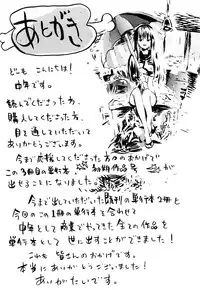 あとがき
どうも こんにちは!
中年です。
読んでくださった方、
購入してくださった方、
目を通していただいて
ありがとうございます。
今まで応援してくださった方々のおかげで
この3冊目の単行本 初期作品号 が
出せることになりました。
今まで出していただいた既刊の単行本2冊と
今回のこの1冊の単行本を合わせて
中年として商業でやってきた全ての作品を
単行本として世に出すことができました!
これも皆さんのおかげです。
本当にありがとうございました!
ありがたいです。